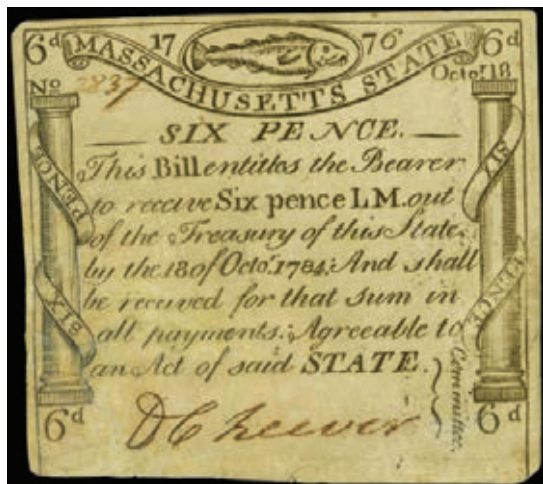 6d 17 76 6d
MASSACHUSETTS STATE
No 2837 Octor. 18
SIX PENCE.
This Bill entitles the Bearer
to receive Six pence L.M. out
of the Treasury of this State.
by the 18 of Octor. 1784; And shall
be received for that sum in
all payments: Agreeable to
an Act of said STATE.
SIX PENCE
SIX PENCE
Committee.
6d D Cheever 6d